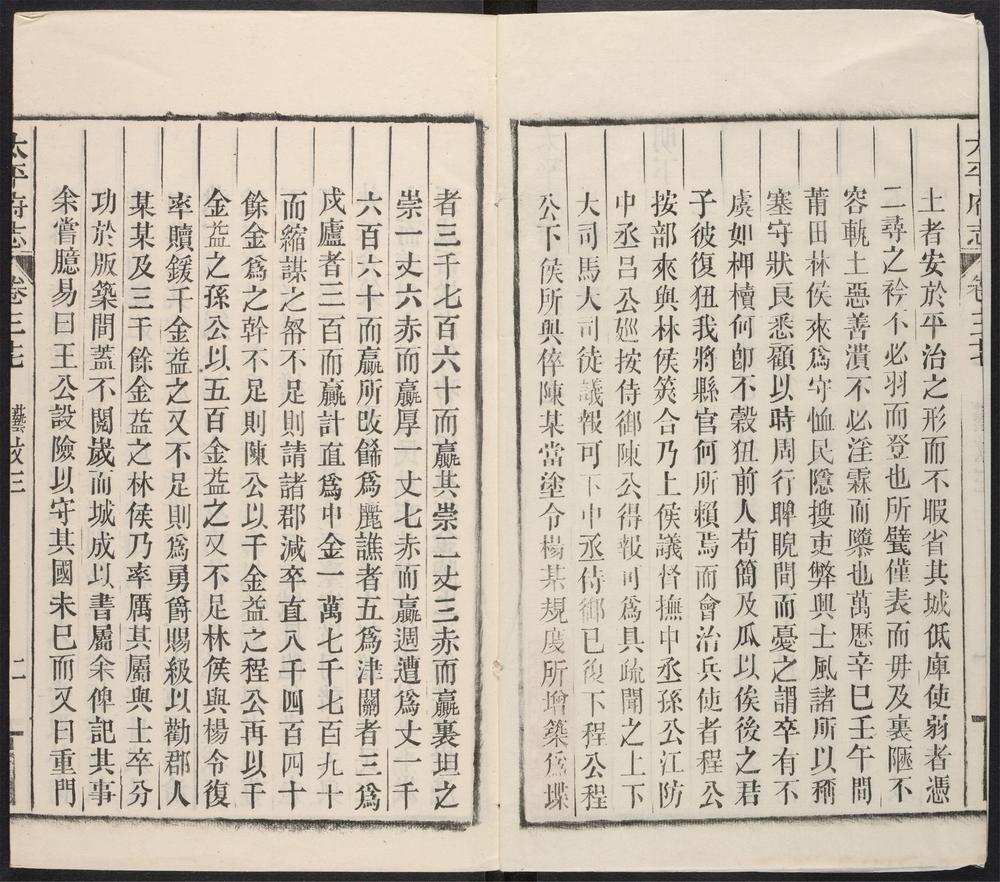 太平府志 卷三十七
土者安於平治之形而不暇省其城低庳使弱者憑
二尋之衿不必羽而登也所甓僅表而毋及裏陋不
容軌土惡善潰不必淫霖而隳也萬曆辛巳壬午間
莆田林侯來爲守恤民隱搜吏弊興士風諸所以稱
塞守狀良悉顧以時周行睥睨間而憂之謂卒有不
虞如柙櫝何卽不穀狃前人苟簡及瓜以俟後之君
子彼復狃我將縣官何所賴焉而會治兵使者程公
按部來與林侯筴合乃上侯議督撫中丞孫公江防
中丞呂公廵按侍御陳公得報可爲具疏聞之上下
大司馬大司徒議報可下中丞侍御已復下程公程
公下侯所與倅陳某當塗令楊某規度所增築爲堞
者三千七百六十而贏其崇二丈三赤而贏裏坦之
崇一丈六赤而贏厚一丈七赤而贏週遭爲丈一千
六百六十而贏所改餙爲麗譙者五爲津關者三爲
戍廬者三百而贏計直爲中金一萬七千七百九十
而縮謀之帑不足則請諸郡減卒直八千四百四十
餘金爲之幹不足則陳公以千金益之程公再以千
金益之孫公以五百金益之又不足林侯與楊令復
率贖鍰千金益之又不足則爲勇爵賜級以勸郡人
某某及三千餘金益之林侯乃率厲其屬與士卒分
功於版築間蓋不閱歲而城成以書屬余俾記其事
余嘗臆易曰王公設險以守其國未巳而又曰重門
太平府志 卷三十七 藝文三 二